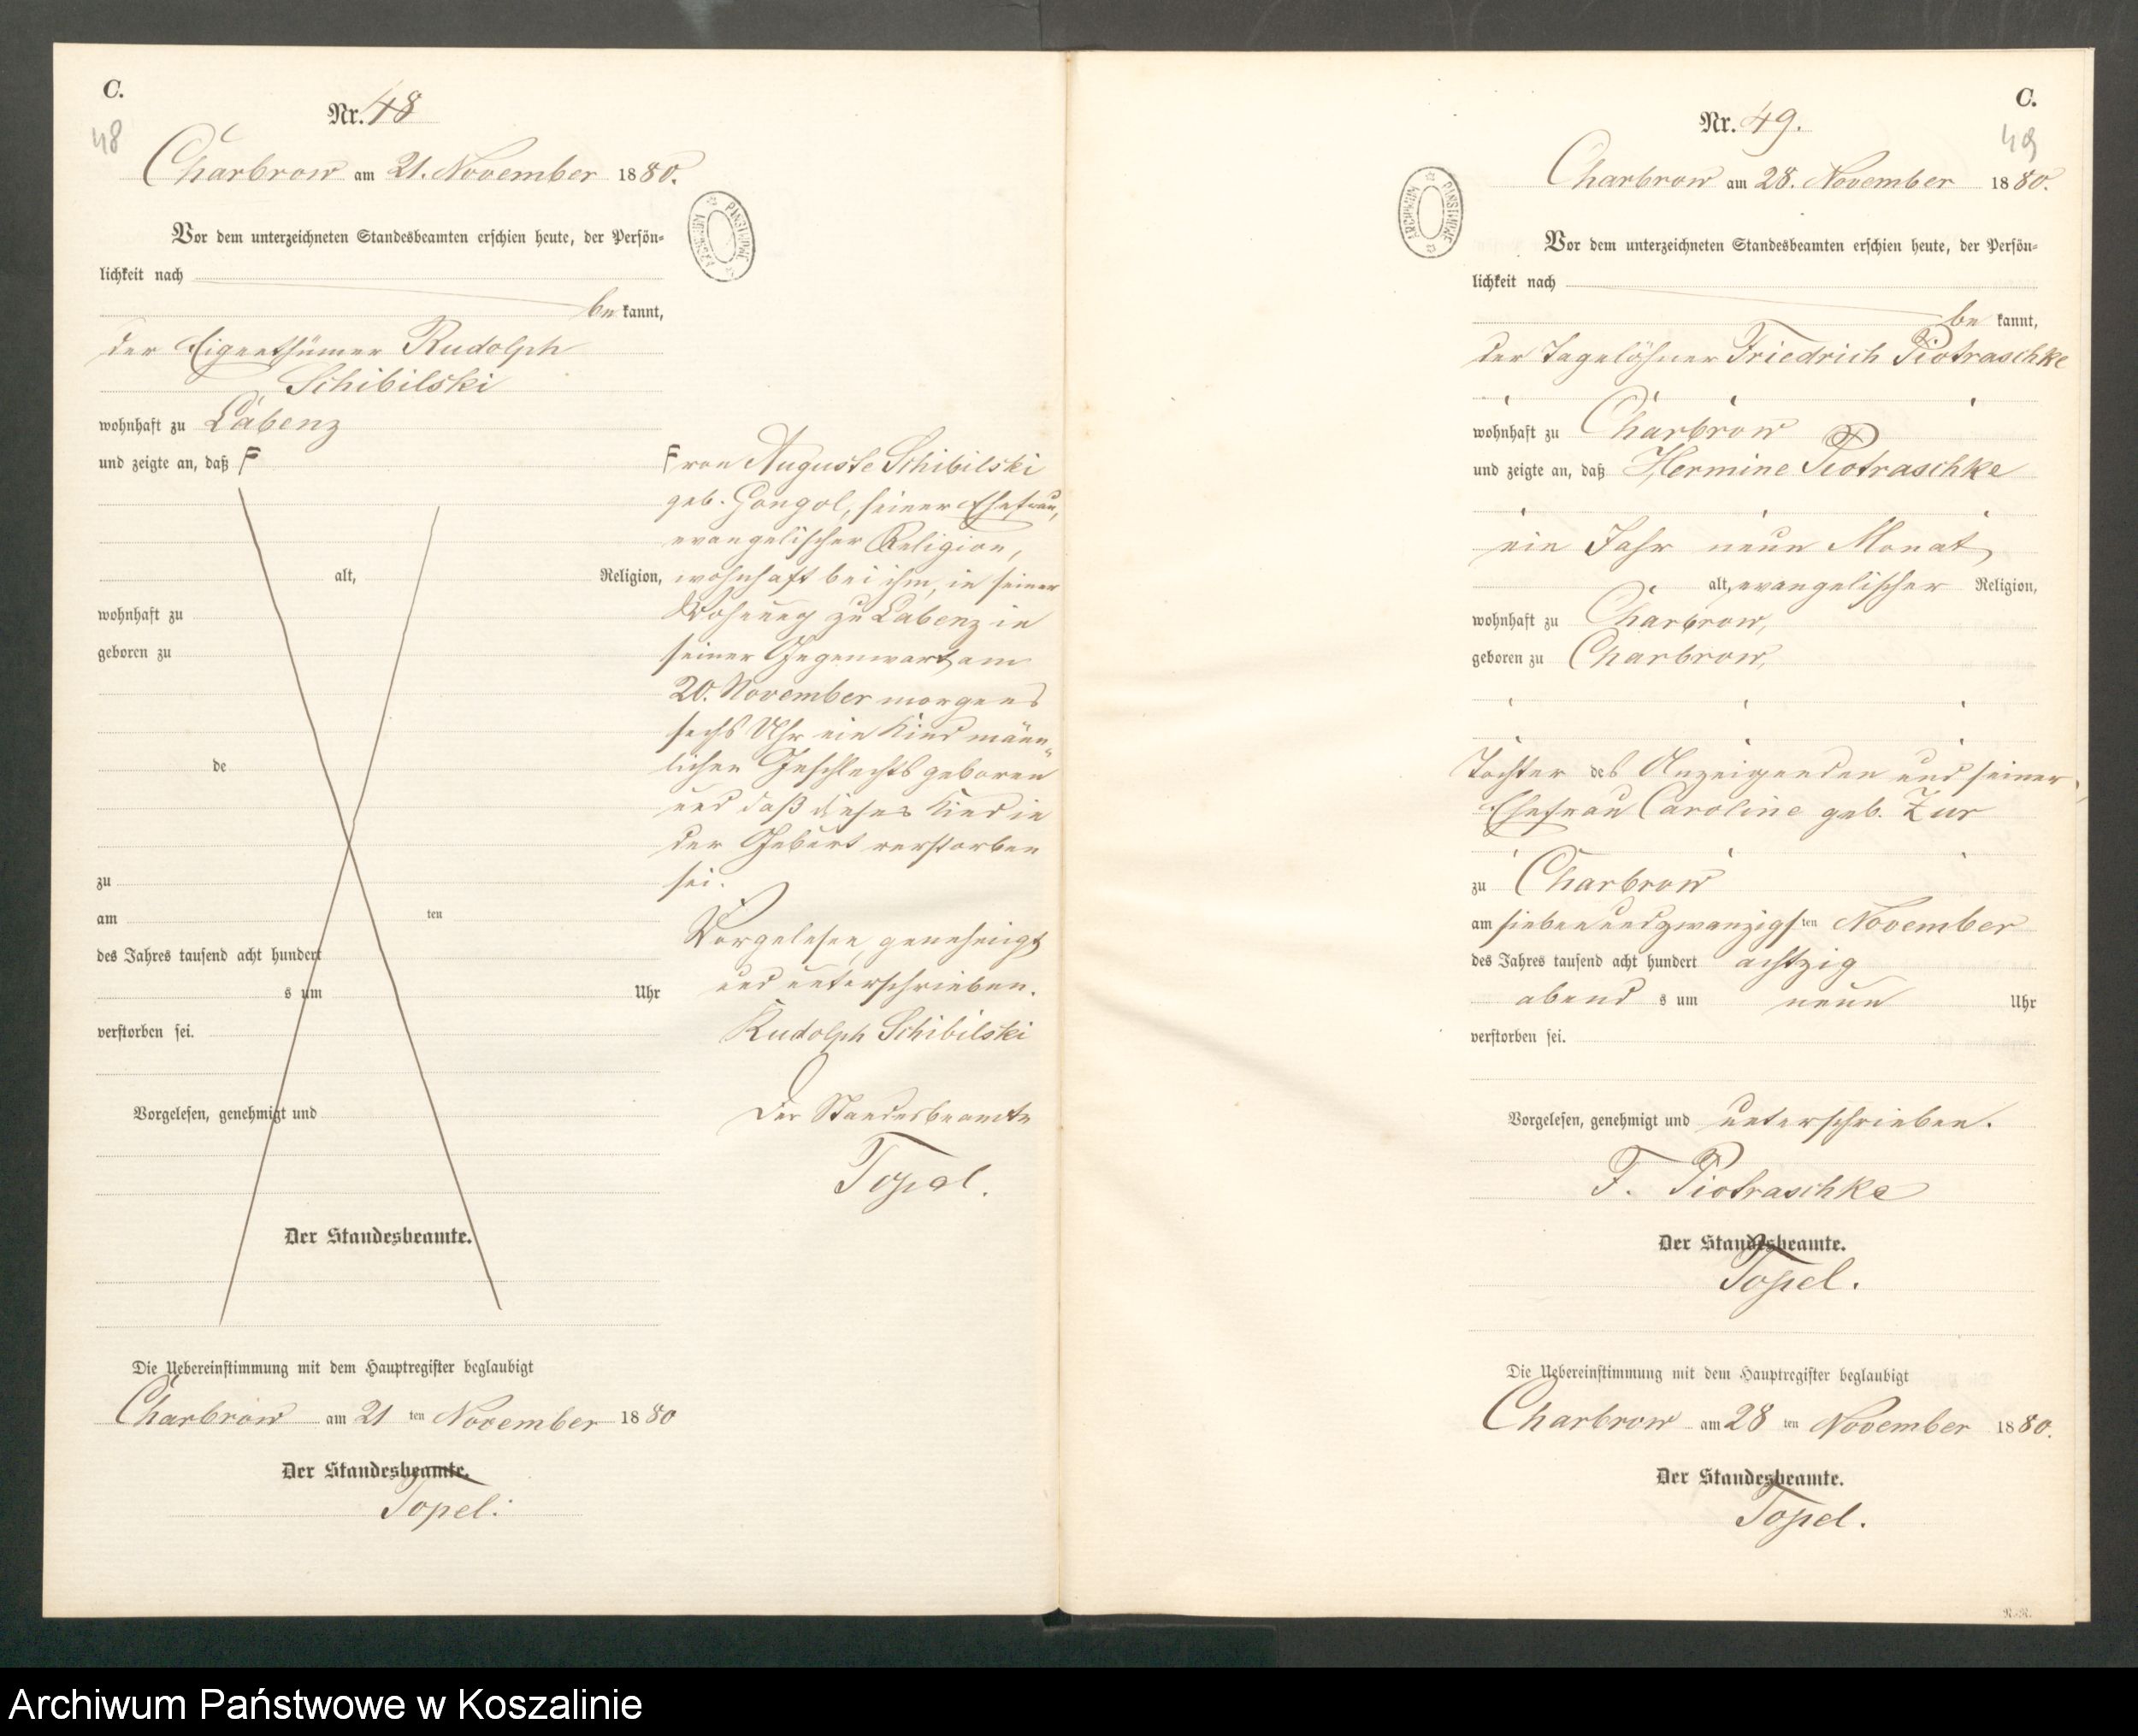 C.
48
Nr. 48
Charbrow am 21. November 1880.
Vor dem unterzeichneten Standesbeamten erschien heute, der Persön-
lichkeit nach
be kannt,
der Eigenthümer Rudolph
Schibilski
wohnhaft zu Labenz
und zeigte an, daß F
alt, Religion,
wohnhaft zu
geboren zu
de
zu
am ten
des Jahres tausend acht hundert
s um Uhr
verstorben sei.
Vorgelesen, genehmigt und
Der Standesbeamte.
Die Uebereinstimmung mit dem Hauptregister beglaubigt
Charbrow am 21 ten November 1880
Der Standesbeamte.
Topel.
ARCHIWUM PAŃSTWOWE
F von Auguste Schibilski
geb. Gongol, seiner Ehefrau,
evangelischer Religion,
wohnhaft bei ihm, in seiner
Wohnung zu Labenz in
seiner Gegenwart, am
20. November morgens
sechs Uhr ein Kind männ-
lichen Geschlechts geboren
und daß dieses Kind in
der Geburt verstorben
sei.
Vorgelesen, genehmigt
und unterschrieben.
Rudolph Schibilski
Der Standesbeamte
Topel.
C.
49
Nr. 49.
Charbrow am 28. November 1880.
ARCHIWUM PAŃSTWOWE
Vor dem unterzeichneten Standesbeamten erschien heute, der Persön-
lichkeit nach
be kannt,
der Tagelöhner Friedrich Piotraschke
wohnhaft zu Charbrow
und zeigte an, daß Hermine Piotraschke
ein Jahr neun Monat
alt, evangelischer Religion,
wohnhaft zu Charbrow,
geboren zu Charbrow,
Tochter des Anzeigenden und seiner
Ehefrau Caroline geb. Zur
zu Charbrow
am siebenundzwanzigsten November
des Jahres tausend acht hundert achtzig
abend s um neun Uhr
verstorben sei.
Vorgelesen, genehmigt und unterschrieben.
F. Piotraschke
Der Standesbeamte.
Topel.
Die Uebereinstimmung mit dem Hauptregister beglaubigt
Charbrow am 28 ten November 1880.
Der Standesbeamte.
Topel.
Archiwum Państwowe w Koszalinie